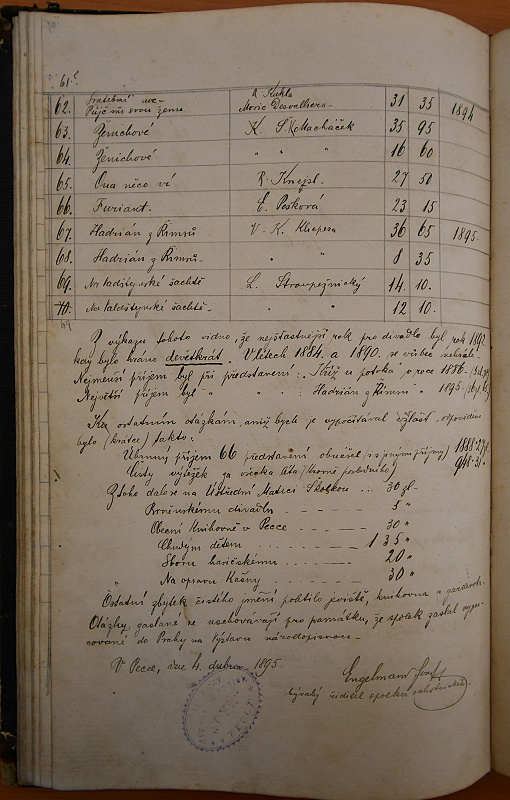 61.
62. Svatební noc - A Kukla
Půjč mi svou ženu. Moric Desvalliers - 31 35 1894
63. Ženichové K. S. Macháček 35 95
64. Ženichové " " " 16 60
65. Ona něco ví R. Knejzl. 27 50
66. Furiant. E. Pešková 23 15
67. Hadrián z Římsů V. K. Klicpera 36 65 1895.
68. Hadrián z Římsů - " " 8 35
69. Na Valdštýnské šachtě L. Stroupežnický 14 10.
70. Na Valdštýnské šachtě - " " 12 10.
69
Z výkazu tohoto vidno, že nejšťastnější rok pro divadlo byl rok
kdy bylo hráno devětkrát. V létech 1884. a 1890. se vůbec nehrálo.
Nejmenší příjem byl při představení: "Stráž u potoka" v roce 1886
Největší příjem byl " " " Hadrián z Římsů " 1895
Ku ostatním otázkám, aniž bych je vypočítával zvlášť, odpovídám
bylo (krátce) takto:
Úhrnný příjem 66 představení obnášel (i s jinými příjmy)
Čistý výtěžek za všecka léta
Z toho dalo se na Ústřední Matici Školskou ... 30 zl -
Brněnskému divadlu 5 "
Obecní Knihovně v Pecce - - - - 30 "
Chudým dětem 135 "
Sboru hasičskému - - - - 20 "
" Na opravu Kašny - - - - 30 "
Ostatní zbytek čistého jmění pohltilo jeviště, knihovna a garderoba.
Otázky zaslané se uschovávají pro památku, že spolek zaslal vypra-
cované do Prahy na výstavu národopisnou -
V Pecce, dne 4. dubna 1895.
Engelmann Josef
bývalý ředitel spolku ochotnického